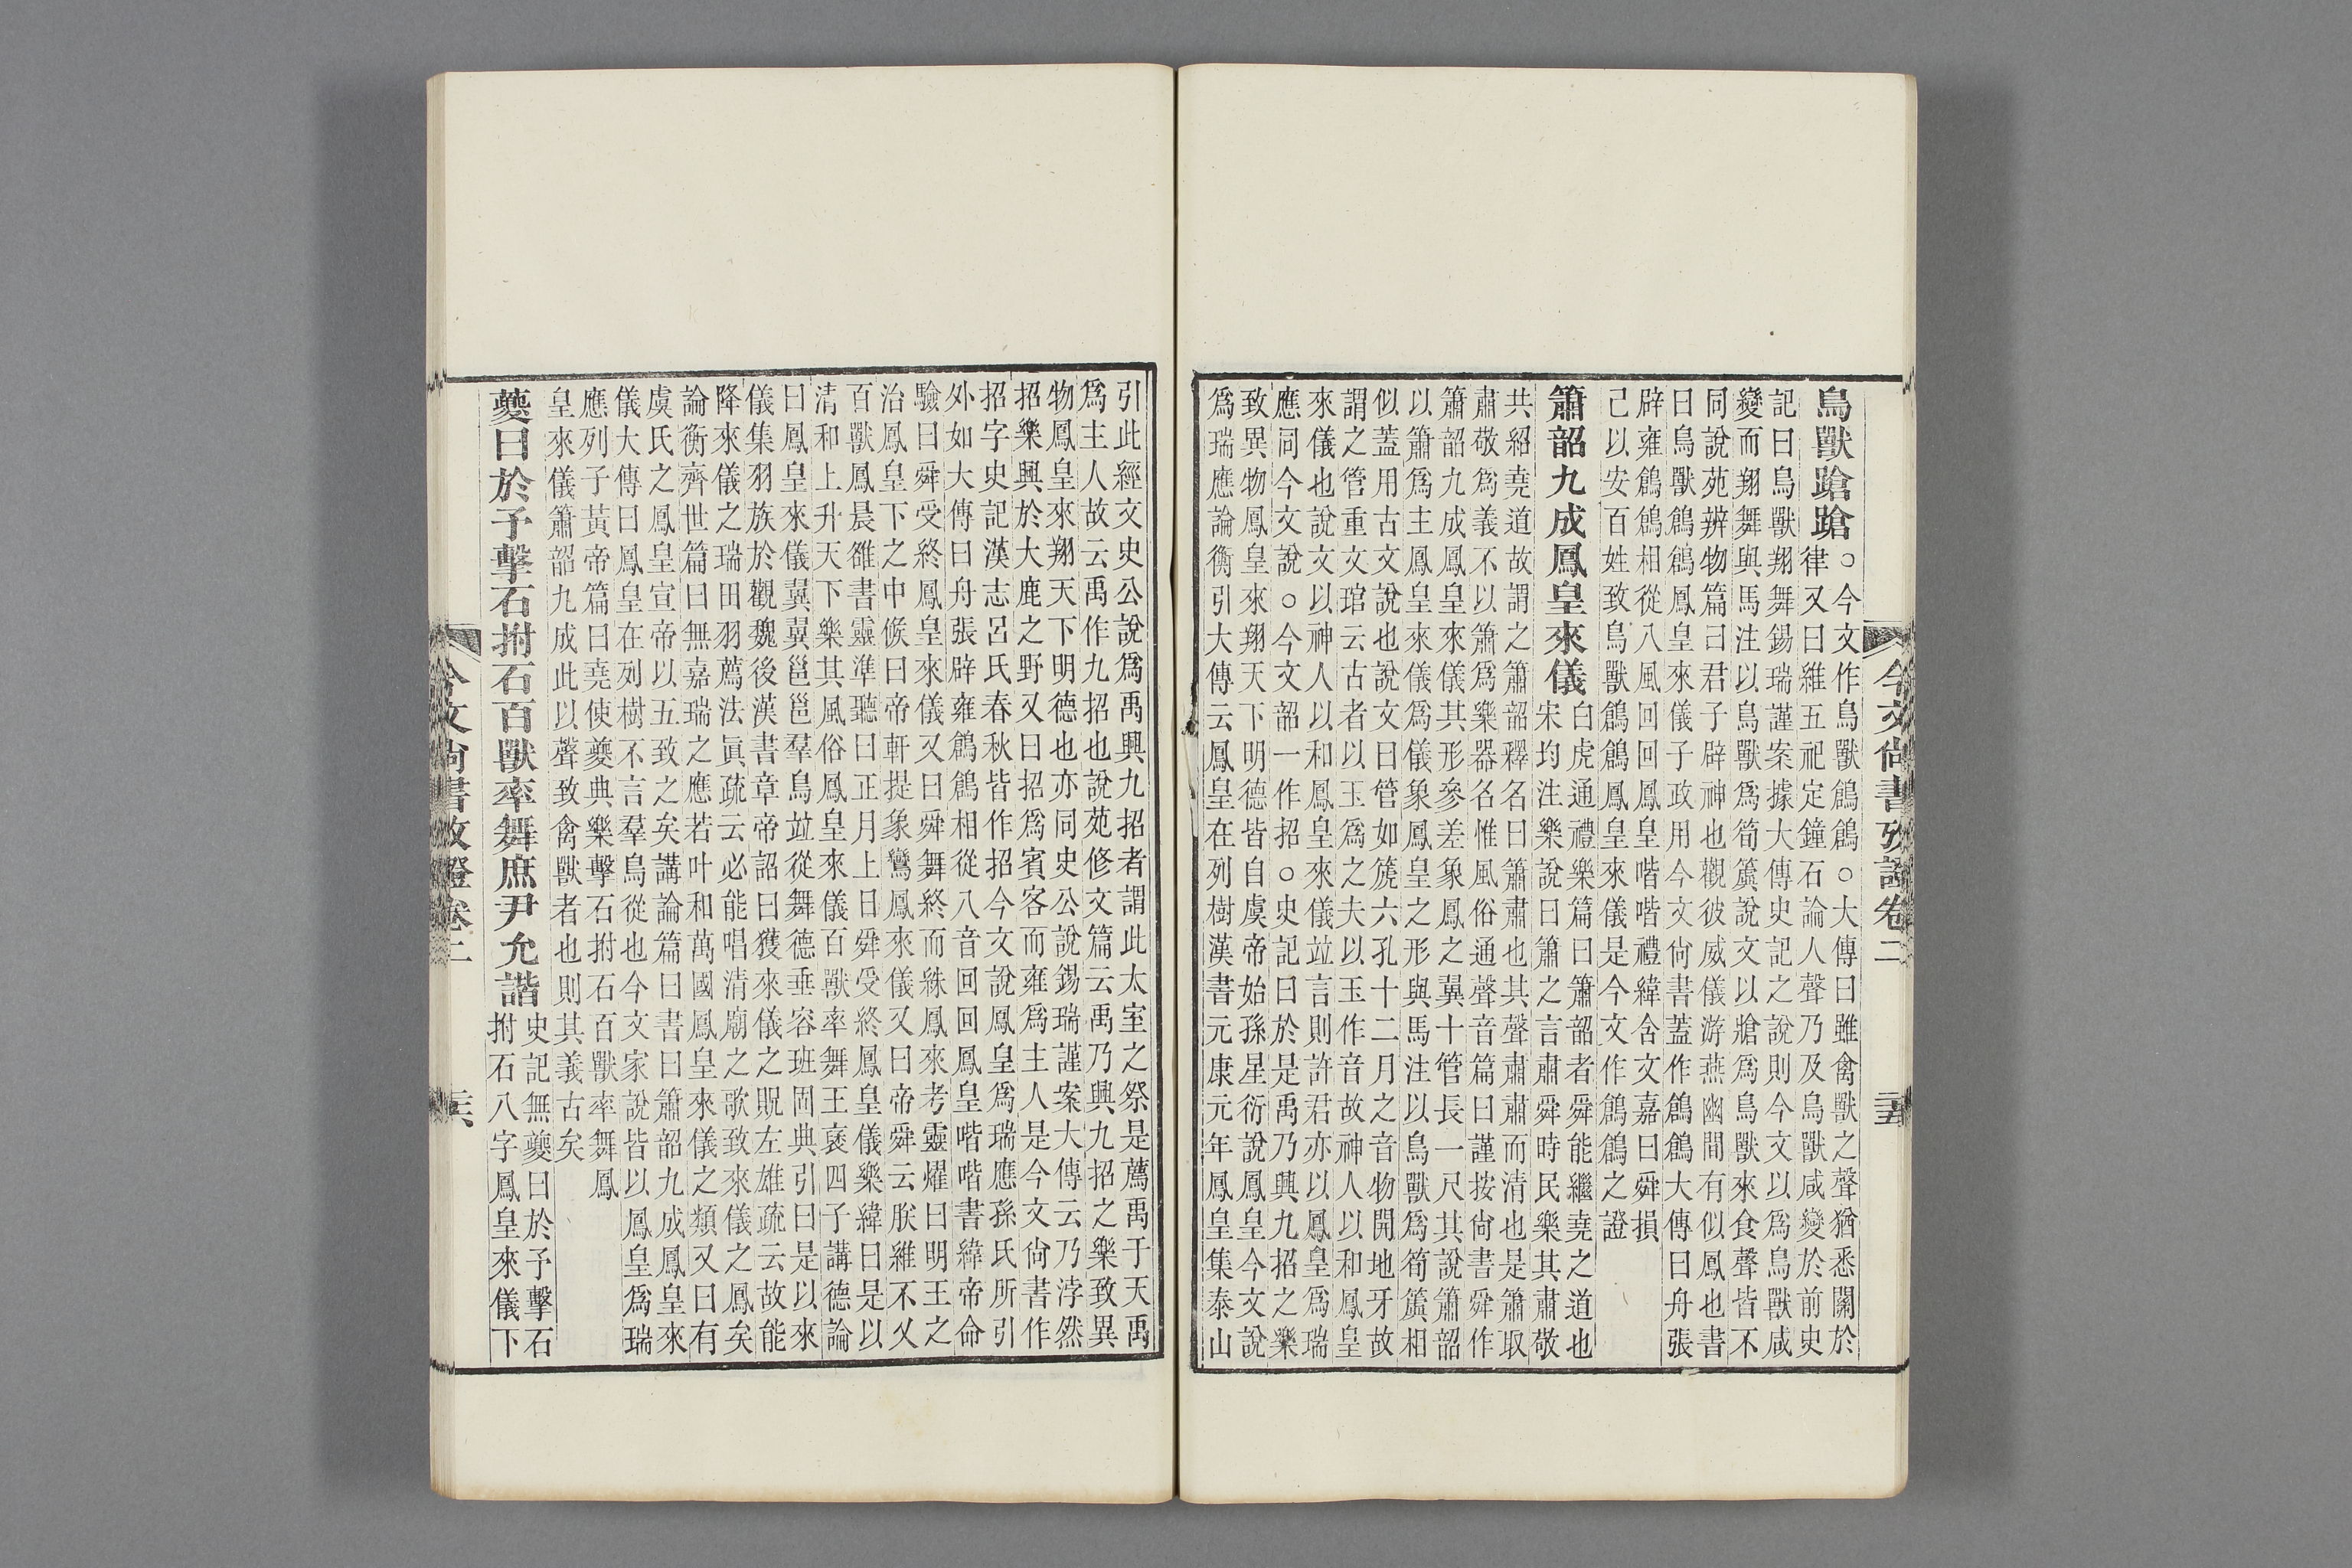 今文尚書攷證卷二
鳥獸蹌蹌○今文作鳥獸鶬鶬○大傳曰雖禽獸之聲猶悉關於
律又曰維五祀定鐘石論人聲乃及鳥獸咸變於前史
記曰鳥獸翔舞錫瑞謹案據大傳史記之說則今文以爲鳥獸咸
變而翔舞與馬注以鳥獸爲筍簴說文以牄爲鳥獸來食聲皆不
同說苑辨物篇曰君子辟神也觀彼威儀游燕幽間有似鳳也書
曰鳥獸鶬鶬鳳皇來儀子政用今文尙書蓋作鶬鶬大傳曰舟張
辟雍鶬鶬相從八風回回鳳皇喈喈禮緯含文嘉曰舜損
己以安百姓致鳥獸鶬鶬鳳皇來儀是今文作鶬鶬之證
簫韶九成鳳皇來儀白虎通禮樂篇曰簫韶者舜能繼堯之道也
宋均注樂說曰簫之言肅舜時民樂其肅敬
共紹堯道故謂之簫韶釋名曰簫肅也其聲肅肅而清也是簫取
肅敬爲義不以簫爲樂器名惟風俗通聲音篇曰謹按尙書舜作
簫韶九成鳳皇來儀其形參差象鳳之翼十管長一尺其說簫韶
以簫爲主鳳皇來儀爲儀象鳳皇之形與馬注以鳥獸爲筍簴相
似蓋用古文說也說文曰管如箎六孔十二月之音物開地牙故
謂之管重文琯云古者以玉爲之夫以玉作音故神人以和鳳皇
來儀也說文以神人以和鳳皇來儀竝言則許君亦以鳳皇爲瑞
應同今文說○今文韶一作招○史記曰於是禹乃興九招之樂
致異物鳳皇來翔天下明德皆自虞帝始孫星衍說鳳皇今文說
爲瑞應論衡引大傳云鳳皇在列樹漢書元康元年鳳皇集泰山
引此經文史公說爲禹興九招者謂此太室之祭是薦禹于天禹
爲主人故云禹作九招也說苑修文篇云禹乃興九招之樂致異
物鳳皇來翔天下明德也亦同史公說錫瑞謹案大傳云乃浡然
招樂興於大鹿之野又曰招爲賓客而雍爲主人是今文尙書作
招字史記漢志呂氏春秋皆作招今文說鳳皇爲瑞應孫氏所引
外如大傳曰舟張辟雍鶬鶬相從八音回回鳳皇喈喈書緯帝命
驗曰舜受終鳳皇來儀又曰舜舞終而緣鳳來考靈燿曰明王之
治鳳皇下之中候曰帝軒提象鸞鳳來儀又曰帝舜云朕維不乂
百獸鳳晨雒書靈準聽曰正月上日舜受終鳳皇儀樂緯曰是以
淸和上升天下樂其風俗鳳皇來儀百獸率舞王褒四子講德論
曰鳳皇來儀翼翼邕邕羣鳥竝從舞德垂容班固典引曰是以來
儀集羽族於觀魏後漢書章帝詔曰獲來儀之貺左雄疏云故能
降來儀之瑞田羽薦法眞疏云必能唱淸廟之歌致來儀之鳳矣
論衡齊世篇曰無嘉瑞之應若叶和萬國鳳皇來儀之類又曰有
虞氏之鳳皇宣帝以五致之矣講論篇曰書曰簫韶九成鳳皇來
儀大傳曰鳳皇在列樹不言羣鳥從也今文家說皆以鳳皇爲瑞
應列子黃帝篇曰堯使夔典樂擊石拊石百獸率舞鳳
皇來儀簫韶九成此以聲致禽獸者也則其義古矣
夔曰於予擊石拊石百獸率舞庶尹允諧史記無夔曰於予擊石
拊石八字鳳皇來儀下
今文尚書攷證卷二